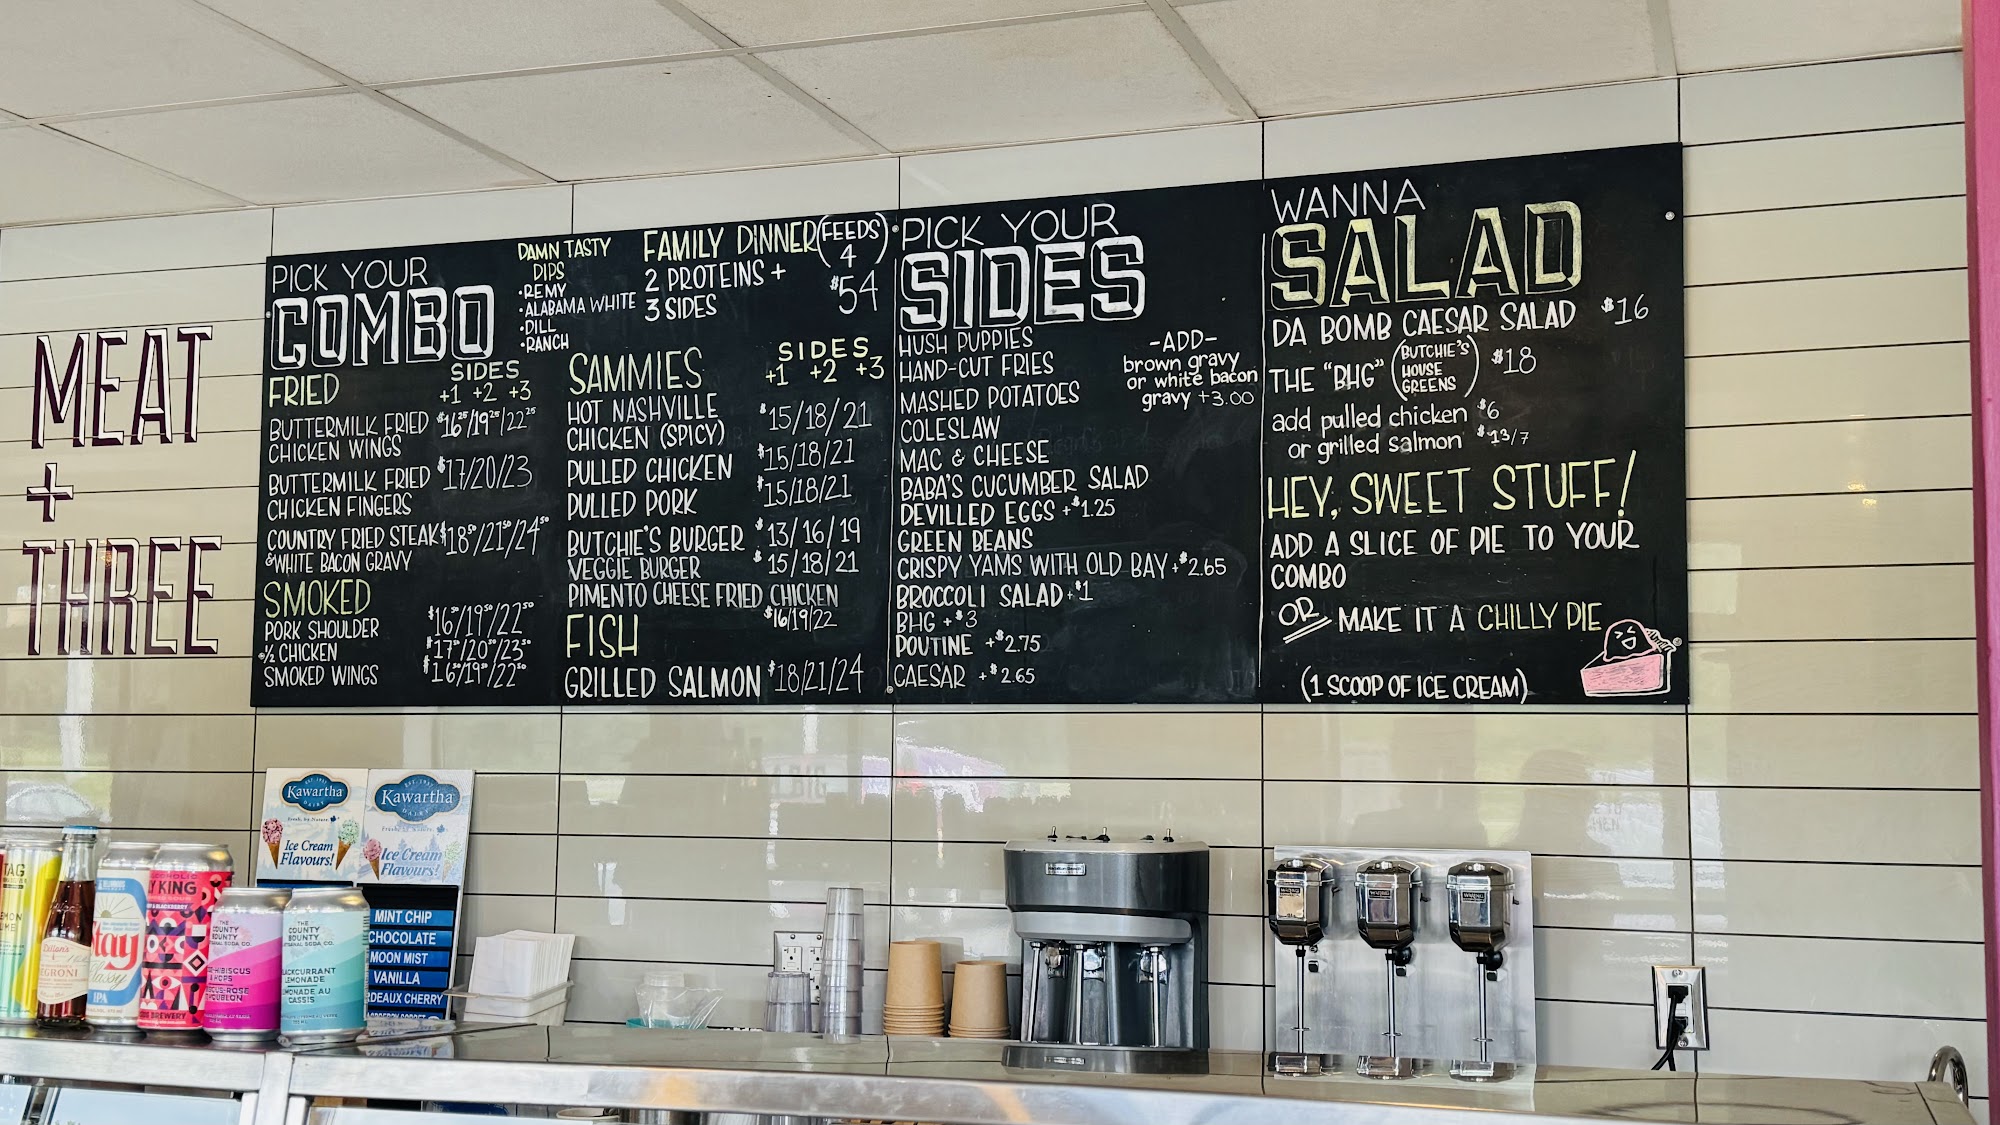 MEAT
+
THREE
PICK YOUR
COMBO
DAMN TASTY
DIPS
•REMY
•ALABAMA WHITE
•DILL
•RANCH
FAMILY DINNER (FEEDS 4)
2 PROTEINS +
3 SIDES
$54
FRIED
SIDES
+1 +2 +3
BUTTERMILK FRIED $16²⁵/19²⁵/22²⁵
CHICKEN WINGS
BUTTERMILK FRIED $17/20/23
CHICKEN FINGERS
COUNTRY FRIED STEAK $18⁵⁰/21⁵⁰/24⁵⁰
&WHITE BACON GRAVY
SMOKED
PORK SHOULDER $16⁵⁰/19⁵⁰/22⁵⁰
½ CHICKEN $17⁵⁰/20⁵⁰/23⁵⁰
SMOKED WINGS $16⁵⁰/19⁵⁰/22⁵⁰
SAMMIES
SIDES
+1 +2 +3
HOT NASHVILLE
CHICKEN (SPICY) $15/18/21
PULLED CHICKEN $15/18/21
PULLED PORK $15/18/21
BUTCHIE'S BURGER $13/16/19
VEGGIE BURGER $15/18/21
PIMENTO CHEESE FRIED CHICKEN
$16/19/22
FISH
GRILLED SALMON $18/21/24
PICK YOUR
SIDES
HUSH PUPPIES
HAND-CUT FRIES
MASHED POTATOES
COLESLAW
MAC & CHEESE
BABA'S CUCUMBER SALAD
DEVILLED EGGS +$1.25
GREEN BEANS
CRISPY YAMS WITH OLD BAY +$2.65
BROCCOLI SALAD +$1
BHG +$3
POUTINE +$2.75
CAESAR +$2.65
-ADD-
brown gravy
or white bacon
gravy +3.00
WANNA
SALAD
DA BOMB CAESAR SALAD $16
THE "BHG" (BUTCHIE'S HOUSE GREENS) $18
add pulled chicken $6
or grilled salmon $13/7
HEY, SWEET STUFF!
ADD A SLICE OF PIE TO YOUR
COMBO
OR MAKE IT A CHILLY PIE
(1 SCOOP OF ICE CREAM)
Kawartha
DAIRY
Ice Cream
Flavours!
Kawartha
DAIRY
Ice Cream
Flavours!
MINT CHIP
CHOCOLATE
MOON MIST
VANILLA
RDEAUX CHERRY
TAG
Stay
Classy
IPA
Y KING
BREWERY
THE
COUNTY
BOUNTY
ARTISANAL SODA CO.
HIBISCUS
& HOPS
THE
COUNTY
BOUNTY
ARTISANAL SODA CO.
LACKCURRANT
LEMONADE
MONADE AU
CASSIS